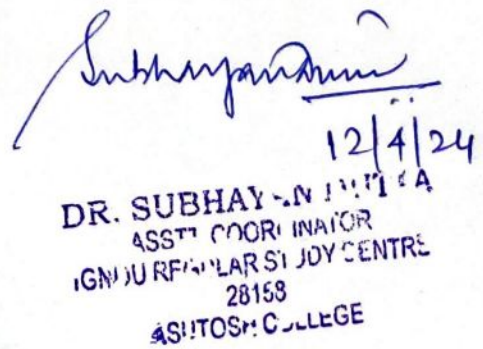 12/4/24
DR. SUBHAYAN
ASSTT COORDINATOR
IGNOU REGULAR STUDY CENTRE
28158
ASUTOSH COLLEGE